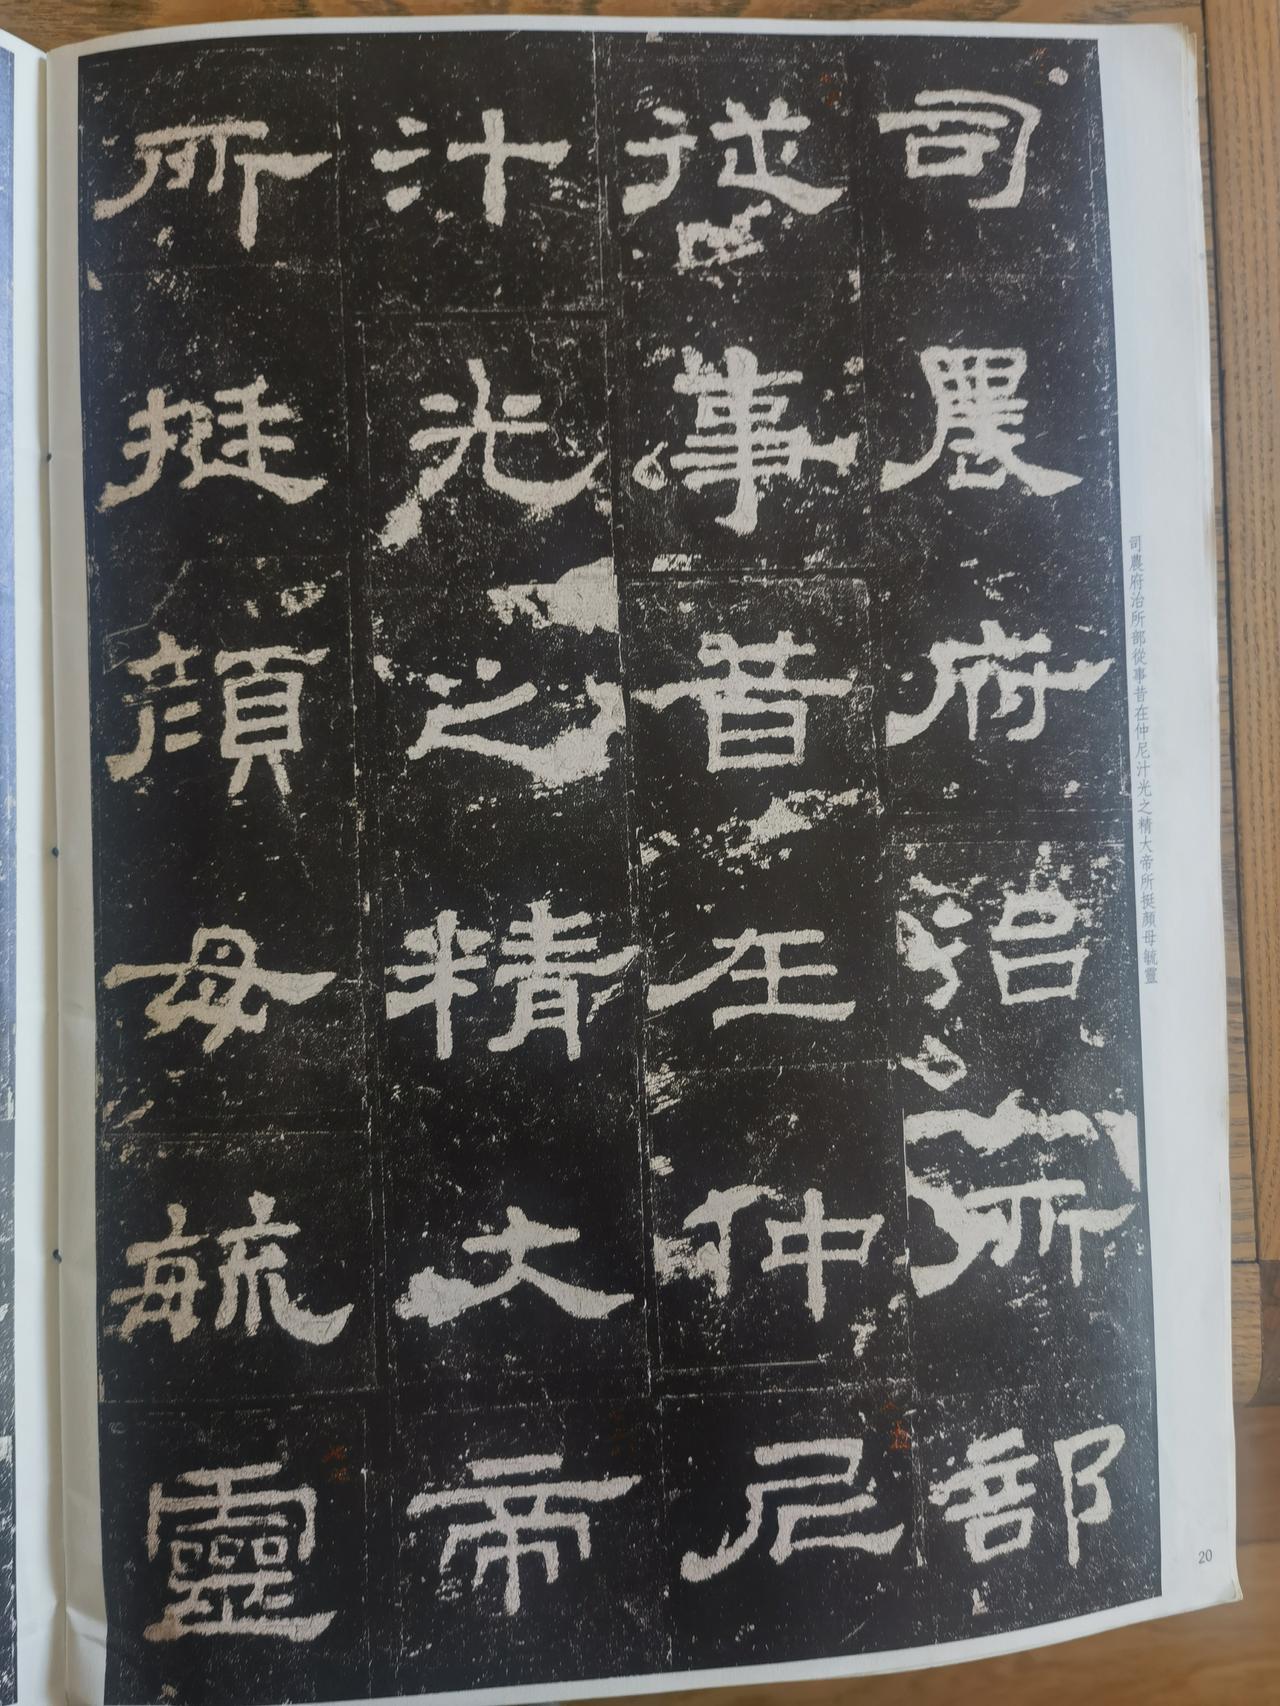 司農府治所部
從事昔在仲尼
汁光之精大帝
所挺顏母毓靈
司農府治所部從事昔在仲尼汁光之精大帝所挺顏母毓靈
20